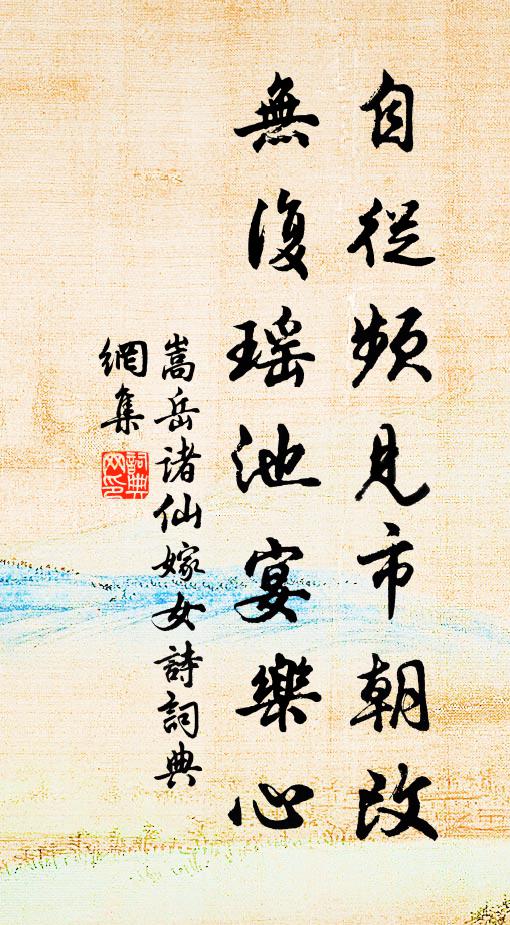 自從頻見市朝改
無復瑶池宴樂心
嵩岳諸仙嫁女詩詞典
網集
詞典網印